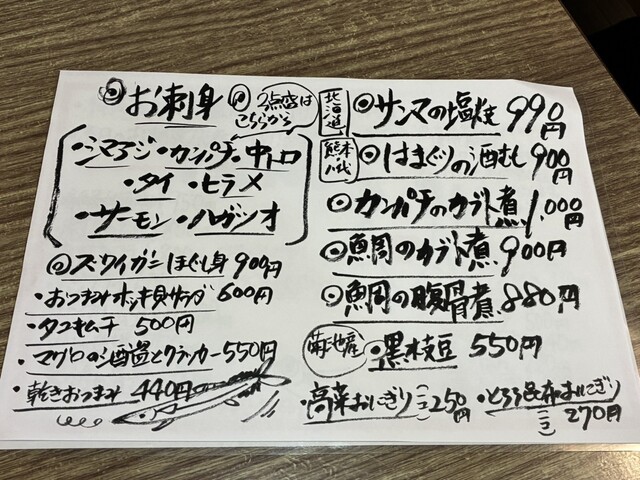 お刺身
2点盛は
こちらから
シマアジ・カンパチ・中トロ
・タイ・ヒラメ
・サーモン・ハガツオ
ズワイガニほぐし身 900円
・おつまみホッキ貝サラダ 600円
・タコキムチ 500円
・マグロの酒盗とクラッカー 550円
・乾きおつまみ 440円
北海道
サンマの塩焼 990円
熊本
八代
はまぐりの酒むし 900円
カンパチのカブト煮 1,000円
鯛のカブト煮 900円
鯛の腹骨煮 880円
菊池産
黒枝豆 550円
・高菜おにぎり(一コ) 250円
・とろろ昆布おにぎり
(一コ) 270円